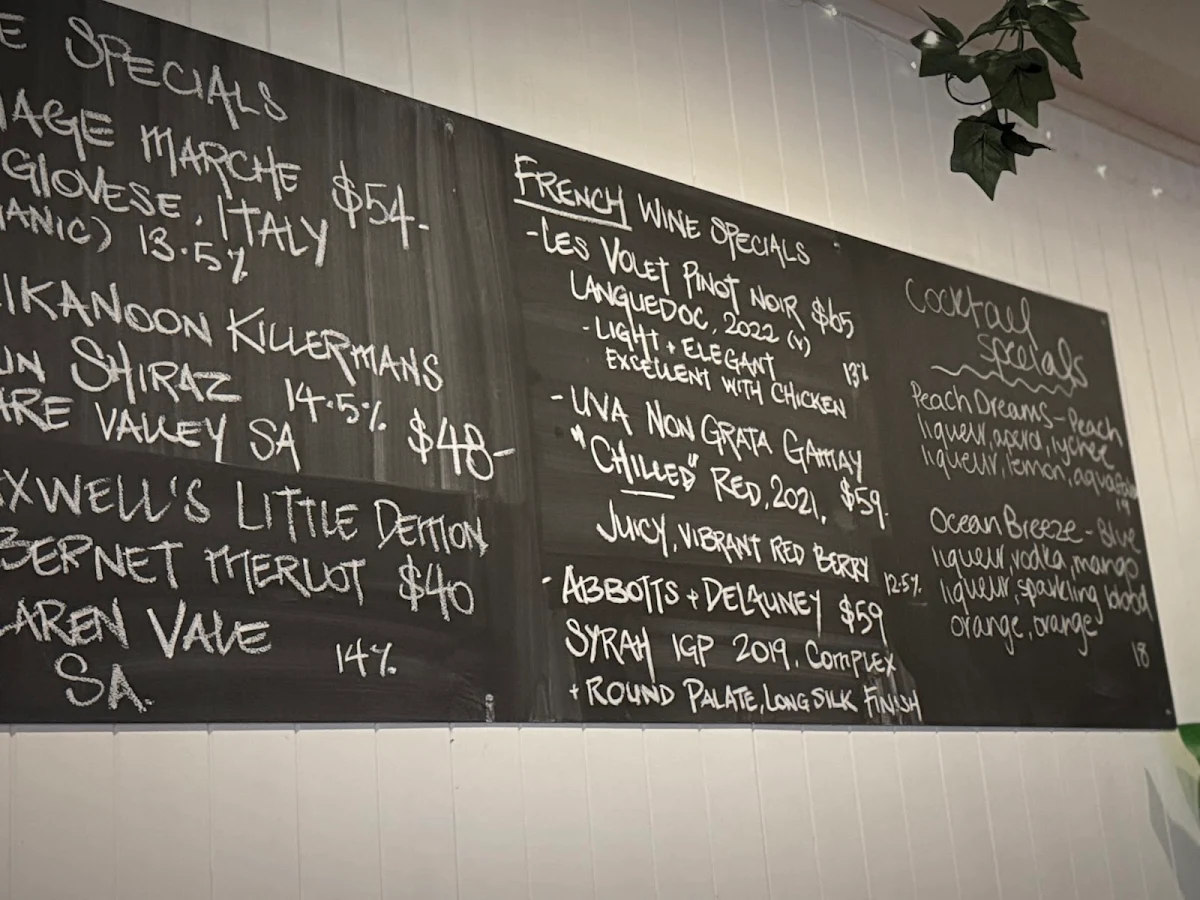 E SPECIALS
AGE MARCHE $54-
GIOVESE. ITALY
ANIC) 13.5%
IKANOON KILLERMANS
UN SHIRAZ 14.5%
ARE VALLEY SA $48-
XWELL'S LITTLE DEMON
BERNET MERLOT $40
LAREN VALE
SA. 14%
FRENCH WINE SPECIALS
-LES VOLET PINOT NOIR $65
LANGUEDOC, 2022 (V)
-LIGHT + ELEGANT 13%
EXCELLENT WITH CHICKEN
-UVA NON GRATA GAMAY
"CHILLED" RED, 2021, $59.
JUICY, VIBRANT RED BERRY 12.5%
-ABBOTTS + DELAUNEY $59
SYRAH IGP 2019. COMPLEX
+ ROUND PALATE, LONG SILK FINISH
Cocktail
specials
Peach Dreams - Peach
liqueur, aperol, lychee
liqueur, lemon, aquafaba
19
Ocean Breeze - Blue
liqueur, vodka, mango
liqueur, sparkling blood
orange, orange
18